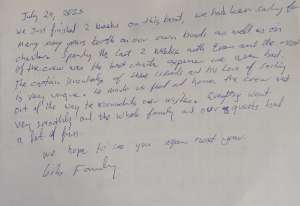 July 29, 2025
We just finished 2 weeks on this boat, we had been sailing for
many many years both on our own boats as well as on
charters. Spending the last 2 weeks with and the rest
of the crew was the best charter experience we ever had.
The captain knowledge of these islands and his love of sailing
is very unique. He made us feel at home. The crew went
out of the way to accomodate our wishes. Everything went
very smoothly and the whole family and our guests had
a lot of fun.
We hope to see you again next year.
Family